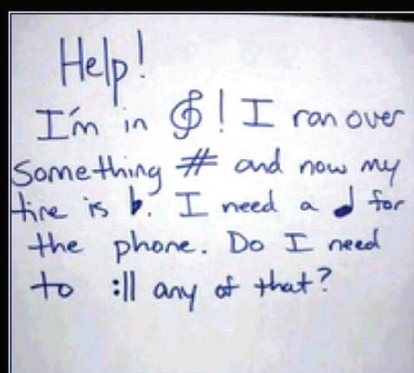 Help!
I'm in 𝄞! I ran over
Something # and now my
tire is ♭. I need a ♩ for
the phone. Do I need
to 𝄇 any of that?